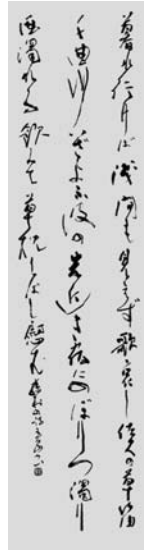 暮れ行けば浅間も見えず歌哀し佐久の草笛
千曲川いざよふ波の岸近き宿にのぼりつ濁り
酒濁れる飲みて草枕しばし慰む